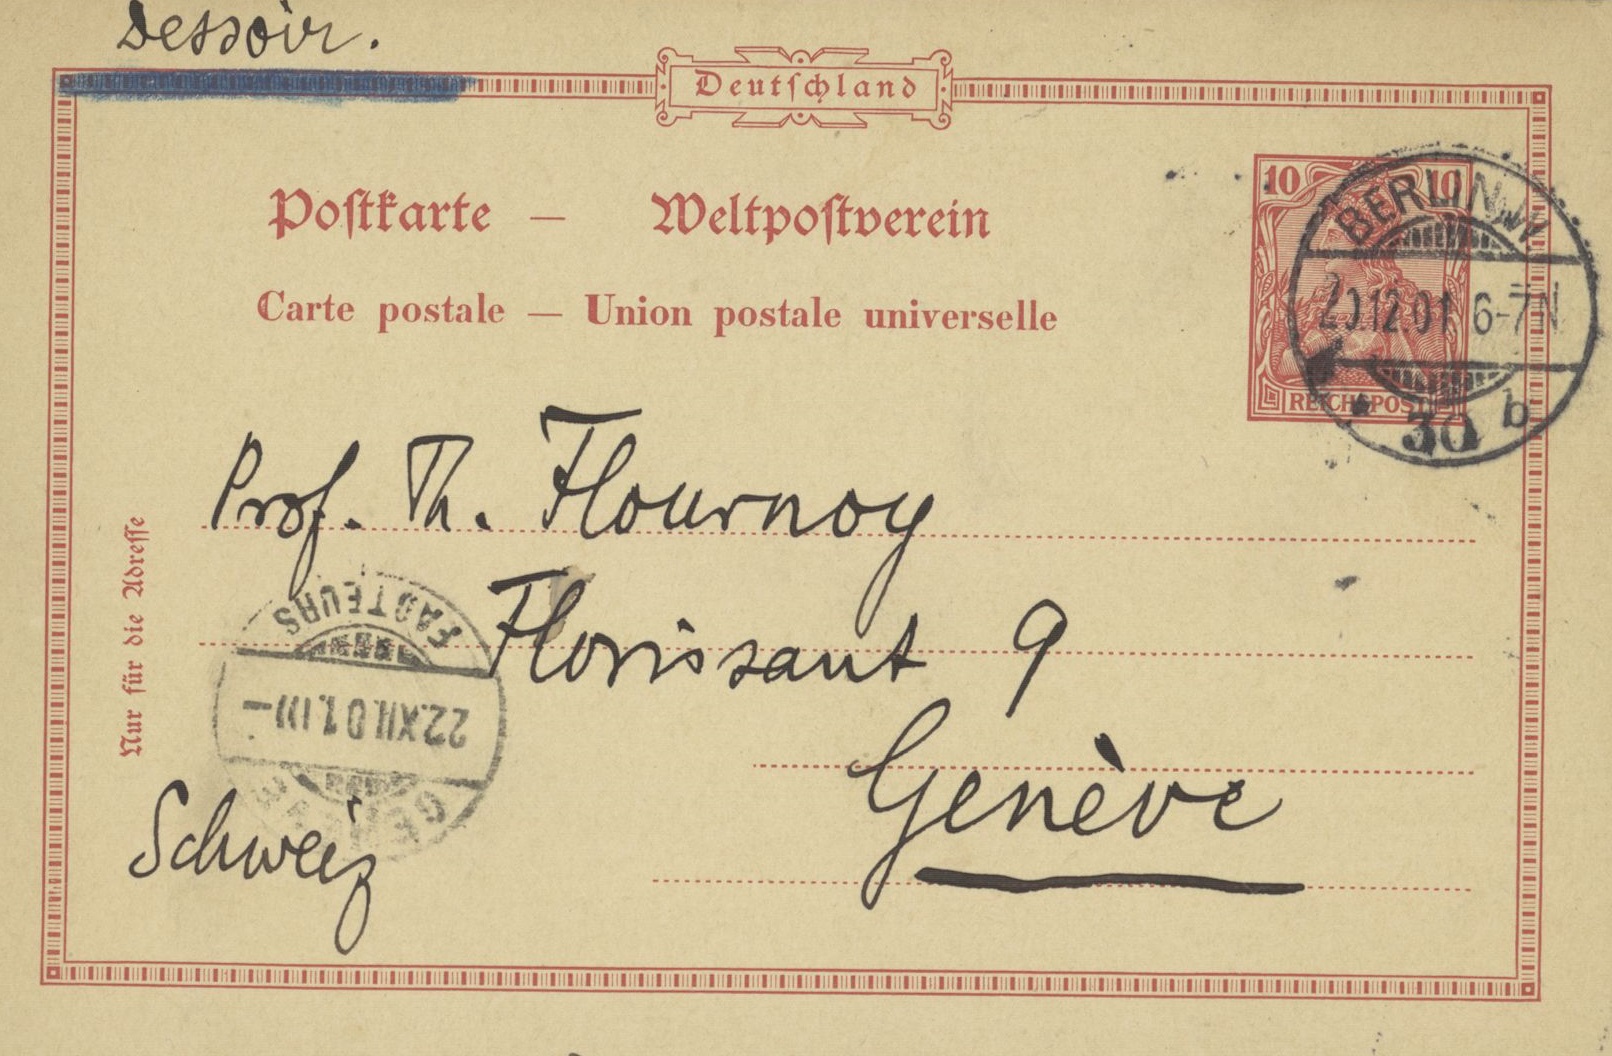 Dessoir.
Deutschland
Postkarte — Weltpostverein
Carte postale — Union postale universelle
10 10
REICHSPOST
BERLIN.W
20.12.01 6-7N
30 b
Prof. Th. Flournoy
Florissant 9
Genève
Schweiz
Nur für die Adresse
FACTEURS
22.XII.01.III—
GENÈVE